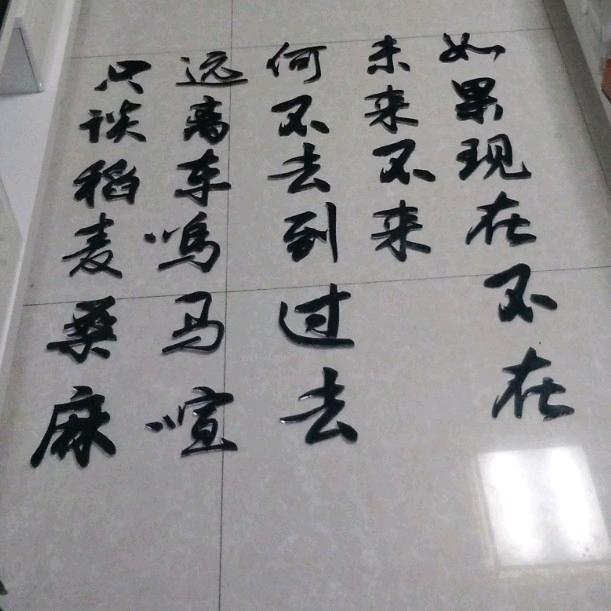 如果现在不在
未来不来
何不去到过去
远离车鸣马喧
只谈稻麦桑麻